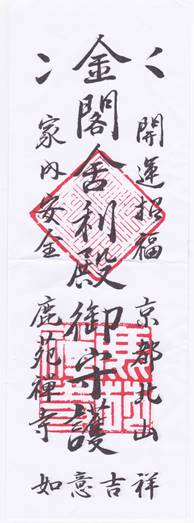 開運招福
京都北山
金閣舍利殿御守護
家内安全
鹿苑禅寺
如意吉祥